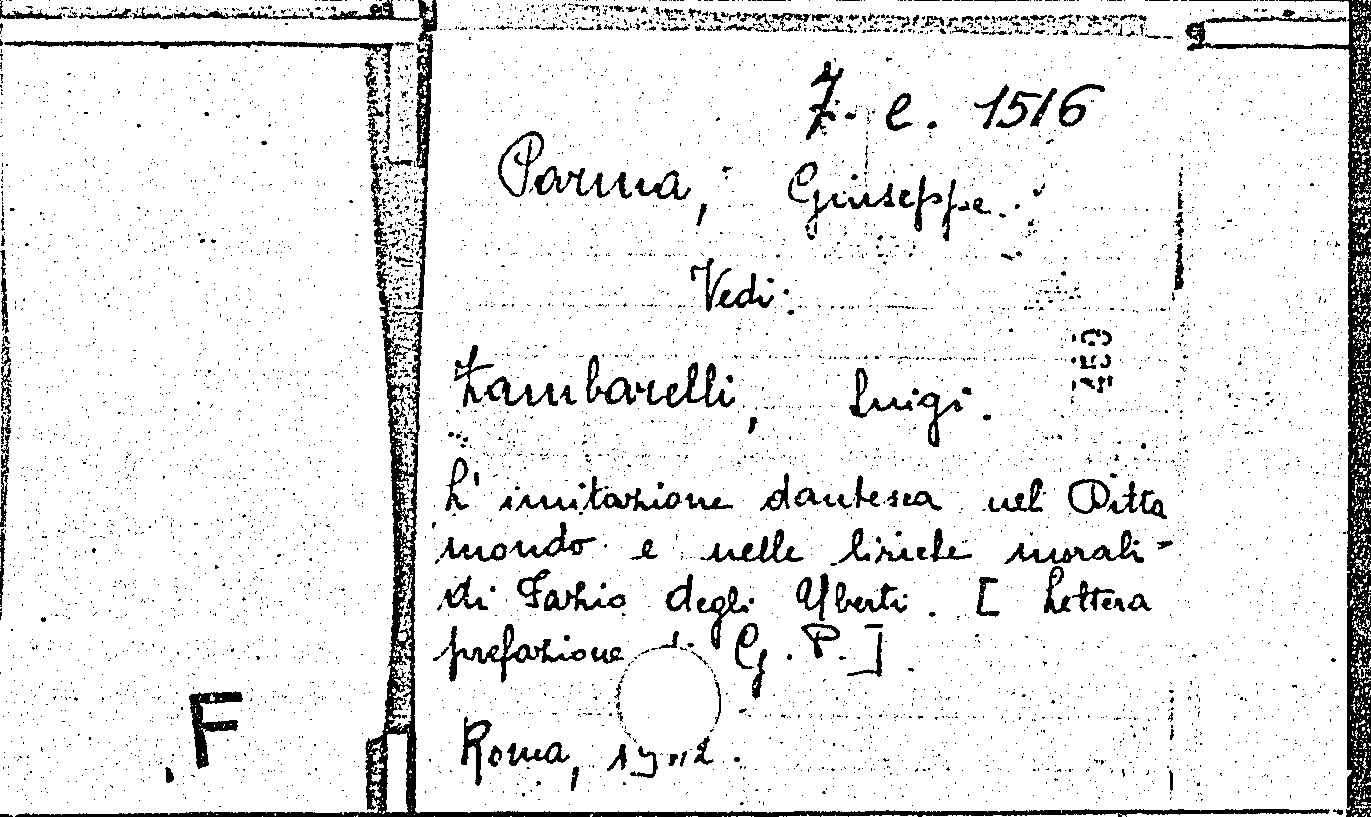 7. e. 1516
Parma, Giuseppe.
Vedi:
Zambarelli, Luigi.
L' imitazione dantesca nel Ditta
mondo e nelle liriche morali
di Fazio degli Uberti. [ Lettera
prefazione di G. P. ]
Roma,
F